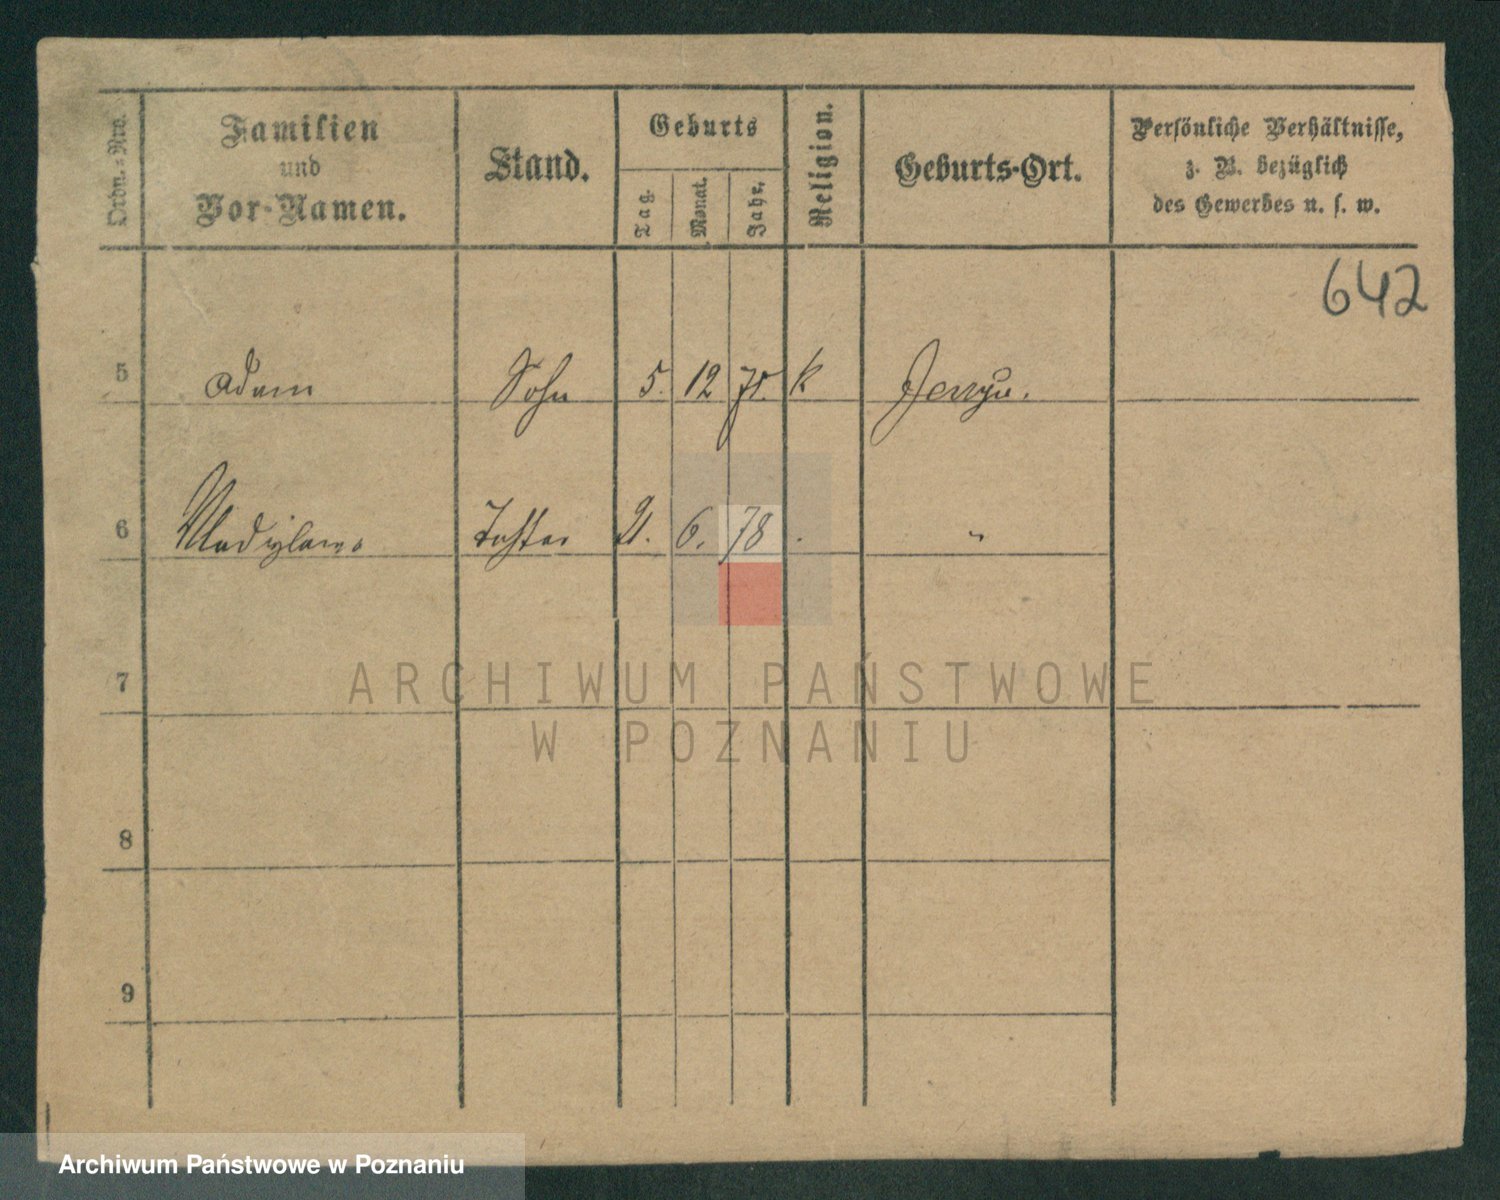 Ordn.=Nro.
Familien
und
Vor-Namen.
Stand.
Geburts
Tag.
Monat.
Jahr.
Religion.
Geburts-Ort.
Persönliche Verhältnisse,
z. B. bezüglich
des Gewerbes u. s. w.
642
5 Adam Sohn 5. 12 75. k
6 Tochter 21. 6. 78 "
7
ARCHIWUM PAŃSTWOWE
W POZNANIU
8
9
Archiwum Państwowe w Poznaniu